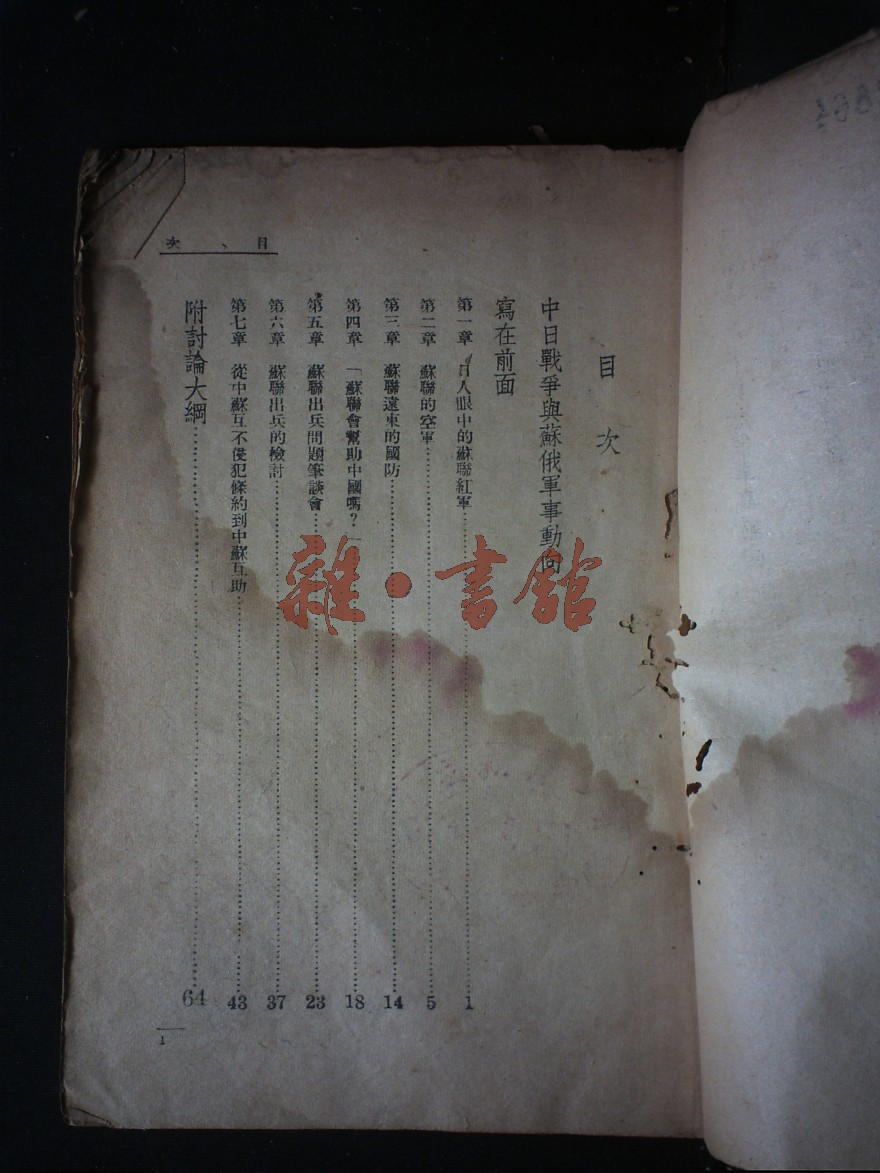 目次
中日戰爭與蘇俄軍事動向
寫在前面
第一章 日人眼中的蘇聯紅軍……1
第二章 蘇聯的空軍……5
第三章 蘇聯遠東的國防……14
第四章 「蘇聯會幫助中國嗎？」……18
第五章 蘇聯出兵問題筆談會……23
第六章 蘇聯出兵的檢討……37
第七章 從中蘇互不侵犯條約到中蘇互助……43
附討論大綱……64
目、次
1
雜·書館